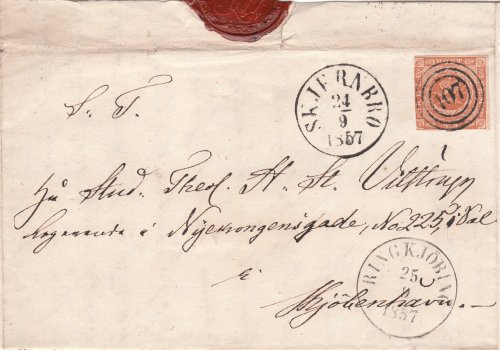 S. T.
SKJERABRO
24
9
1857
107
Stud. Theol. H. St. Vitttrup
logerende i Nyekongensgade, No 225, Sal
i
Kjöbenhavn.
RINGKJÖBING
25
1857